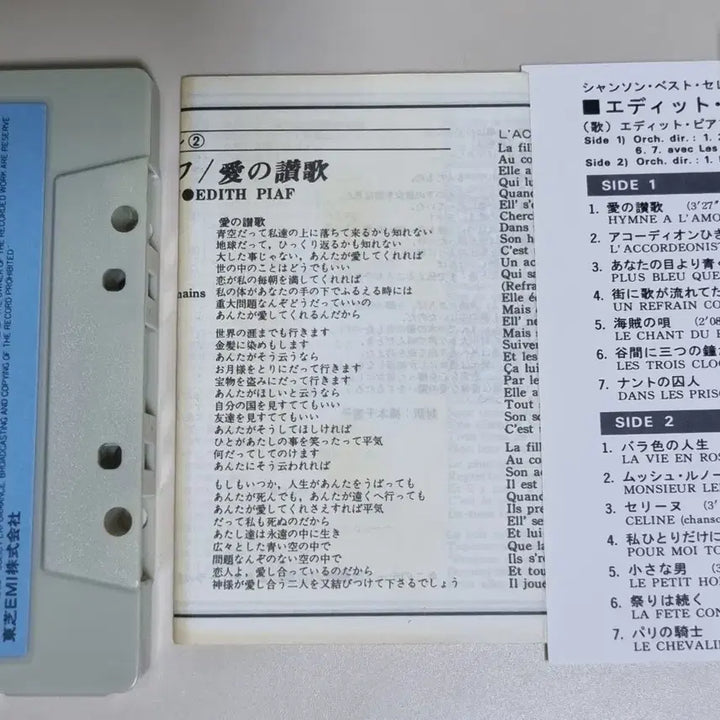 OWNER OF THE RECORDED WORK ARE RESERVE
PERFORMANCE BROADCASTING AND COPYING OF THE RECORD PROHIBITED
東芝EMI株式会社
②
/愛の讃歌
●EDITH PIAF
愛の讃歌
青空だって私達の上に落ちて来るかも知れない
地球だって，ひっくり返るかも知れない
大した事じゃない，あんたが愛してくれれば
世の中のことはどうでもいい
恋が私の毎朝を満してくれれば
私の体があなたの手の下でふるえる時には
重大問題なんぞどうだっていいの
あんたが愛してくれるんだから
世界の涯までも行きます
金髪に染めもします
あんたがそう云うなら
お月様をとりにだって行きます
宝物を盗みにだって行きます
あんたがほしいと云うなら
自分の国を見すててもいい
友達を見すててもいい
あんたがそうしてほしければ
ひとがあたしの事を笑ったって平気
何だってしてのけます
あんたにそう云われれば
もしもいつか，人生があんたをうばっても
あんたが死んでも，あんたが遠くへ行っても
あんたが愛してくれさえすれば平気
だって私も死ぬのだから
あたし達は永遠の中に生き
広々とした青い空の中で
問題なんぞのない空の中で
恋人よ，愛し合っているのだから
神様が愛し合う二人を又結びつけて下さるでしょう
mains
L'AC
La fill
Au co
Elle a
Qui lu
Quand
Ell' s'e
Cherc
Dans
Son h
C'est
Un ac
Qui sa
(Refra
Elle é
Mais
Ell' ne
Mais
Suiver
Et les
Ça lui
Par le
Elle a
Tout
Son s
C'est
La fill
Au co
Son a
Il est
Quand
Ils pre
Ell' se
Et lui
Que la
Ils s'r
Et tou
Il joue
シャンソン・ベスト・セレ
■エディット・
（歌）エディット・ピア
Side 1) Orch. dir. : 1.
6. 7. avec Les
Side 2) Orch. dir. : 1.
SIDE 1
1. 愛の讃歌 (3'27"
HYMNE A L'AMO
2. アコーディオンひき
L'ACCORDEONIST
3. あなたの目より青く
PLUS BLEU QUE
4. 街に歌が流れてた
UN REFRAIN CO
5. 海賊の唄 (2'08
LE CHANT DU P
6. 谷間に三つの鐘が
LES TROIS CLOC
7. ナントの囚人
DANS LES PRISO
SIDE 2
1. バラ色の人生
LA VIE EN ROS
2. ムッシュ・ルノー
MONSIEUR LE
3. セリーヌ (3'
CELINE (chanso
4. 私ひとりだけに
POUR MOI TO
5. 小さな男 (3
LE PETIT HO
6. 祭りは続く
LA FETE CON
7. パリの騎士
LE CHEVALIE